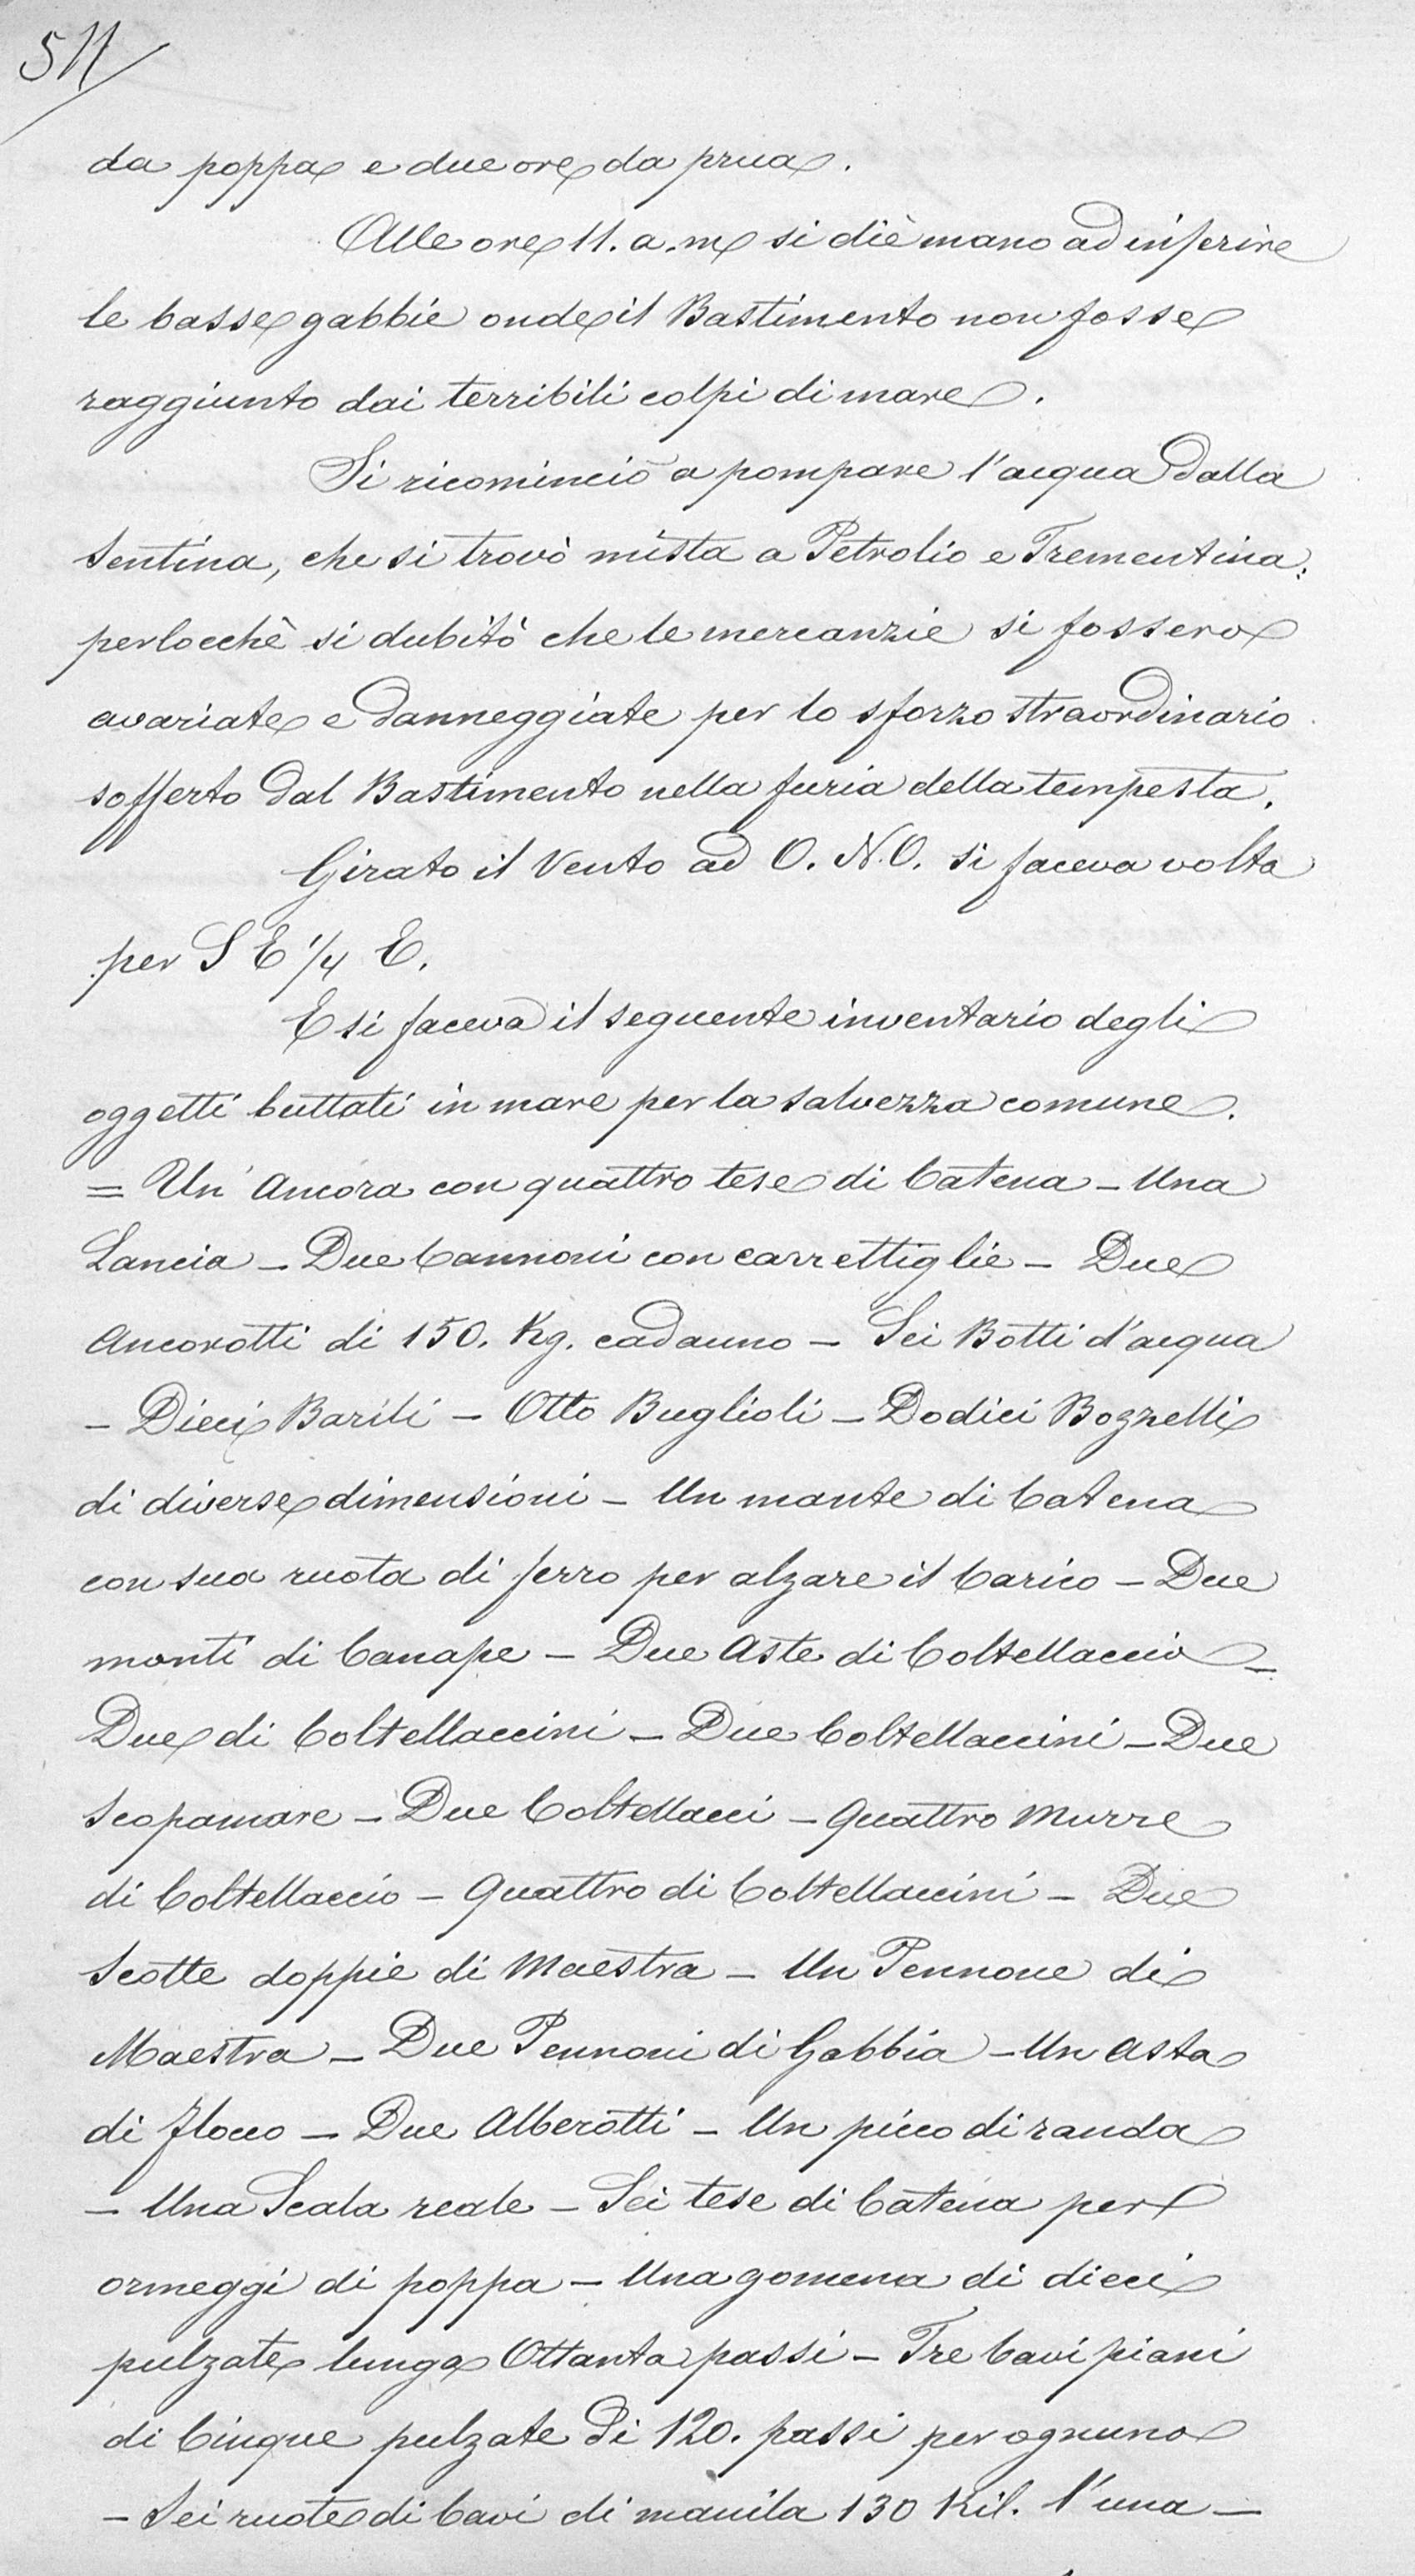 511
da poppa e due ore da prua.
Alle ore 11. a.m si diè mano ad inferire
le basse gabbie onde il Bastimento non fosse
raggiunto dai terribili colpi di mare.
Si ricominciò a pompare l'acqua dalla
Sentina, che si trovò mista a Petrolio e Trementina;
perlocchè si dubitò che le mercanzie si fossero
avariate e danneggiate per lo sforzo straordinario
sofferto dal Bastimento nella furia della tempesta.
Girato il Vento ad O. N.O. si faceva volta
per S E 1/4 E.
E si faceva il seguente inventario degli
oggetti buttati in mare per la salvezza comune.
= Un' Ancora con quattro tese di Catena - Una
Lancia - Due Cannoni con carrettiglie - Due
Ancorotti di 150. Kg. cadauno - Sei Botti d'acqua
- Dieci Barili - Otto Buglioli - Dodici Bozzelli
di diverse dimensioni - Un mante di Catena
con sua ruota di ferro per alzare il Carico - Due
manti di Canape - Due Aste di Coltellaccio -
Due di Coltellaccini - Due Coltellaccini - Due
Scopamare - Due Coltellacci - Quattro Murre
di Coltellaccio - Quattro di Coltellaccini - Due
Scotte doppie di Maestra - Un Pennone di
Maestra - Due Pennoni di Gabbia - Un Asta
di flocco - Due Alberotti - Un picco di randa
- Una Scala reale - Sei tese di Catena per
ormeggi di poppa - Una gomena di dieci
pulzate lunga Ottanta passi - Tre Cavi piani
di Cinque pulzate di 120. passi per ognuno
- Sei ruote di Cavi di manila 130 Kil. l'una -